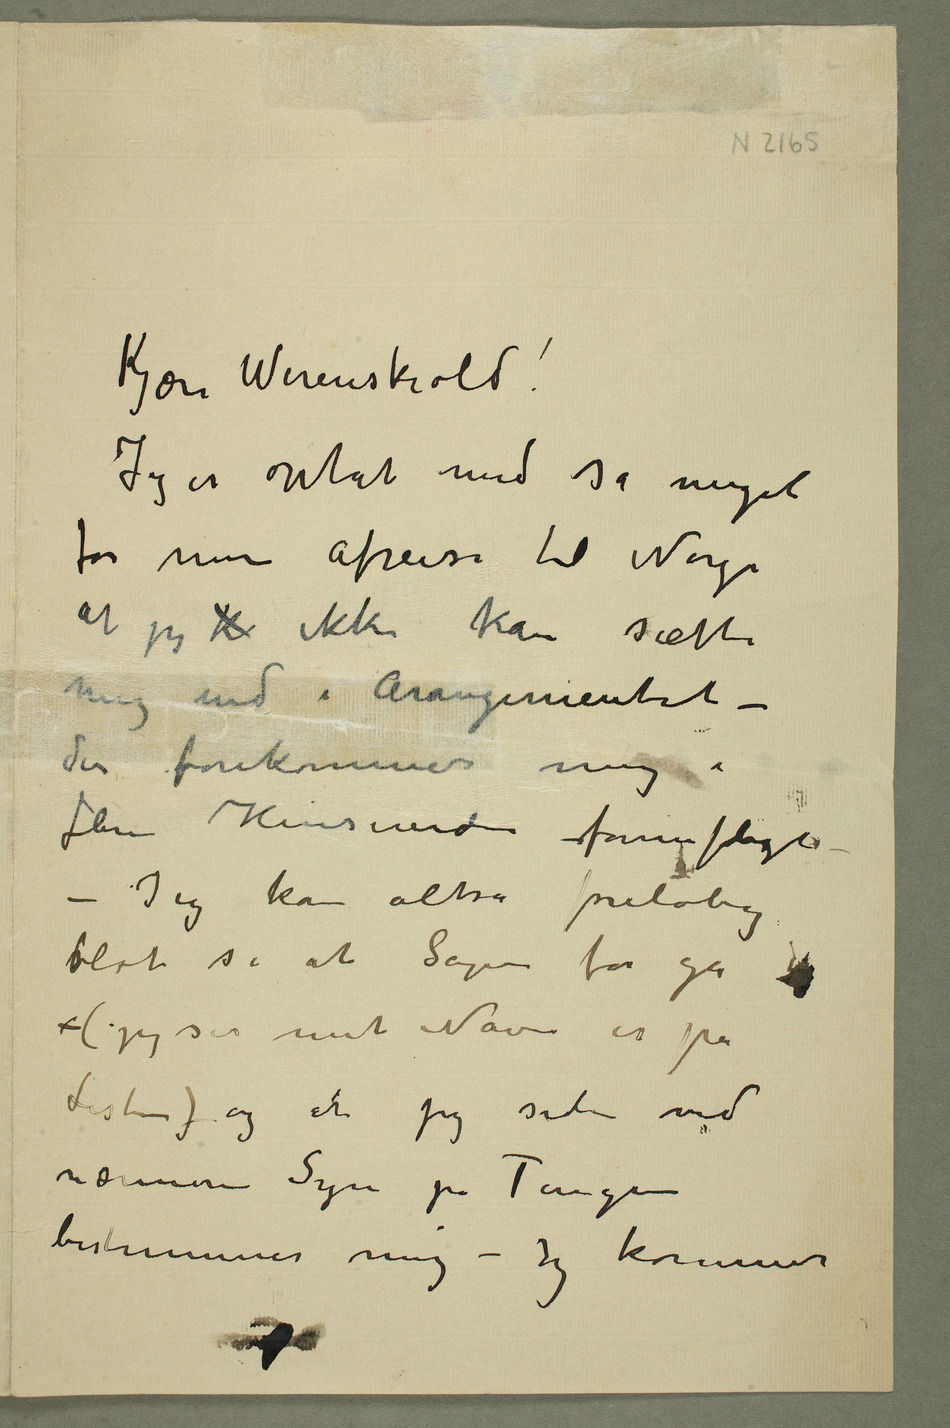 N 2165
Kjære Werenskiold!
Jeg er optat med så meget
før min afreise til Norge
at jeg ikke kan sætte
mig ind i Arangementet –
der forekommer mig i
flere Henseender fornuftigt –
– Jeg kan altså foreløbig
blot si at Sagen får gå
– (jeg ser mit Navn er på
Listen) og at jeg siden ved
nærmere Syn på Tingen
bestemmer mig – Jeg kommer